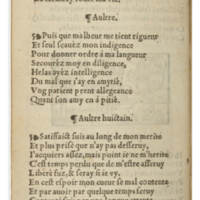 ¶Aultre.
Puis que malheur me tient rigueur
Et seul scauez mon indigence
Pour donner ordre à ma langueur
Secourez moy en diligence
Helas ayez intelligence
Du mal que i'ay en amytié,
Vng patient prent allegeance
Quant son amy en à pitié.
¶Aultre huictain.
Satiffaict suis au long de mon merite
Et plus prisé que n'ay pas desseruy,
I'acquiers assez, mais point ie ne m'herite
C'est temps perdu que de m'estre asseruy
Libere fuz, & seray si ie vy.
En cest espoir mon cueur se mal contente
Et par auoir par quelque temps seruy